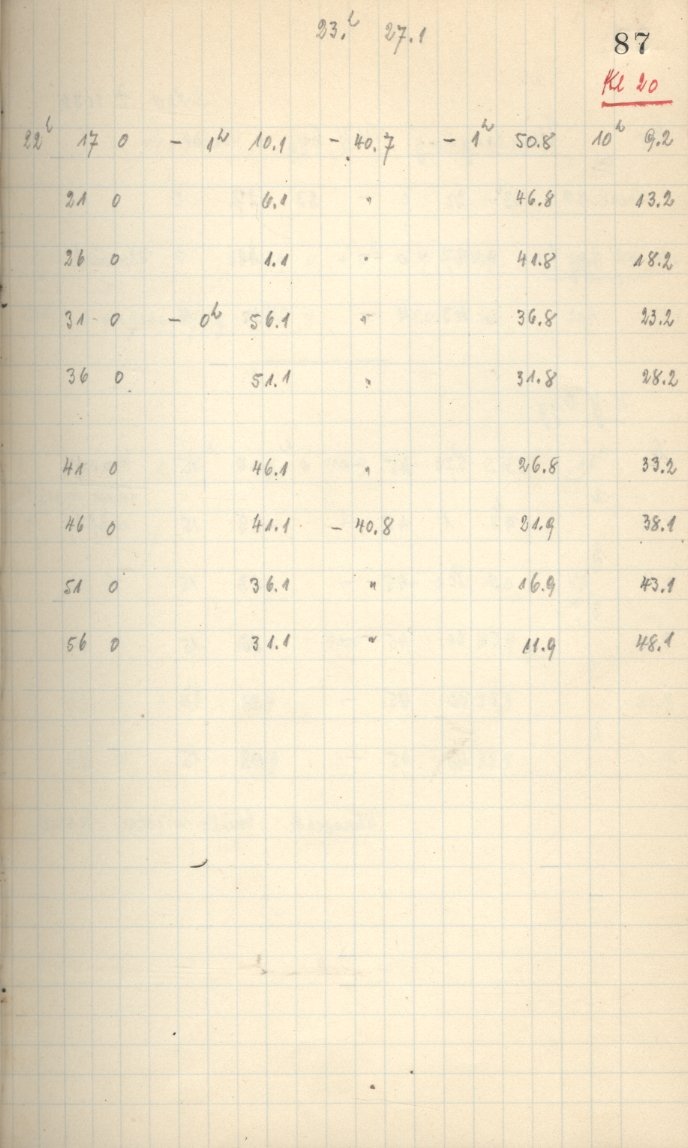 23.h 27.1
87
Kl 20
22h 17 0 - 1h 10.1 - 40.7 - 1h 50.8 10h 9.2
21 0 6.1 " 46.8 13.2
26 0 1.1 " 41.8 18.2
31 0 - 0h 56.1 " 36.8 23.2
36 0 51.1 " 31.8 28.2
41 0 46.1 " 26.8 33.2
46 0 41.1 - 40.8 21.9 38.1
51 0 36.1 " 16.9 43.1
56 0 31.1 " 11.9 48.1